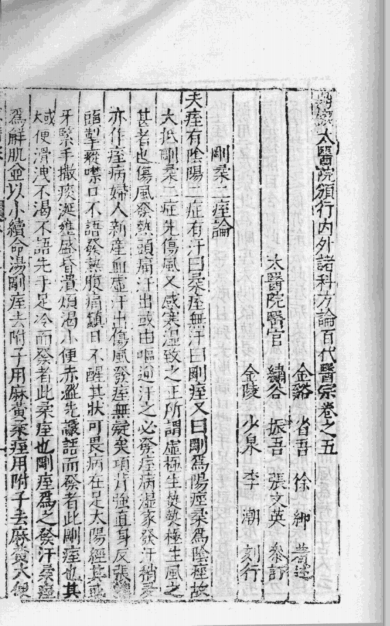 太醫院頒行內外諸科方論百代醫宗卷之五
金谿 省吾 徐
太醫院醫官 繡谷 振吾 張文英 參訂
金陵 少泉 李 潮 刻行
剛柔二痓論
夫痓有陰陽二症有汗曰柔痓無汗曰剛痓又曰剛爲陽痓柔爲陰痓故
大抵剛柔二症先傷風又感寒濕致之正所謂虛極生熱熱極生風之
甚者也傷風發熱頭痛汗出或由嘔逆汗之必發痓病濕家發汗稍多
亦作痓病婦人新產血虛汗出傷風發痓無疑矣項背強直身反張
頭掣瘲噤口不語發熱腹痛鎮日不醒其狀可畏病在足太陽經其或
牙緊手撒痰涎壅盛昏瀆煩渴小便赤澁先譫語而發者此剛痓也其
或大便滑洩不渴不語先手足冷而發者此柔痓也剛痓爲之發汗柔痓
爲解肌並以小續命湯剛痓去附子用麻黃柔痓用附子去麻黃大便